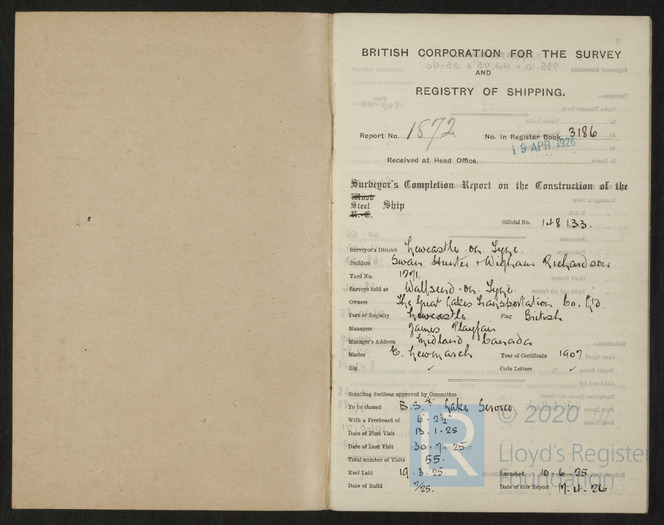 BRITISH CORPORATION FOR THE SURVEY
AND
REGISTRY OF SHIPPING.
Report No. 1872. No. in Register Book 3186
Received at Head Office, 19 APR. 1926
Surveyor's Completion Report on the Construction of the
Wood
Steel Ship
R.-C.
Official No. 148133.
Surveyor's District Newcastle on Tyne.
Builders Swan Hunter & Wigham Richardson
Yard No. 1271.
Surveys held at Wallsend-on-Tyne.
Owners The Great Lakes Transportation Co. Ltd.
Port of Registry Newcastle Flag British
Managers James Playfair
Manager's Address Midland Canada
Master C. Newmarch Year of Certificate 1907
Rig Code Letters
Scantling Sections approved by Committee
To be classed B.S.* Lakes Service
With a Freeboard of 6' 2½"
Date of First Visit 13.1.25
Date of Last Visit 30.7.25
Total number of Visits 55.
Keel Laid 19.3.25 Launched 10.6.25
Date of Build 7/25. Date of this Report 17.4.26
© 2020
Lloyd's Register
Foundation